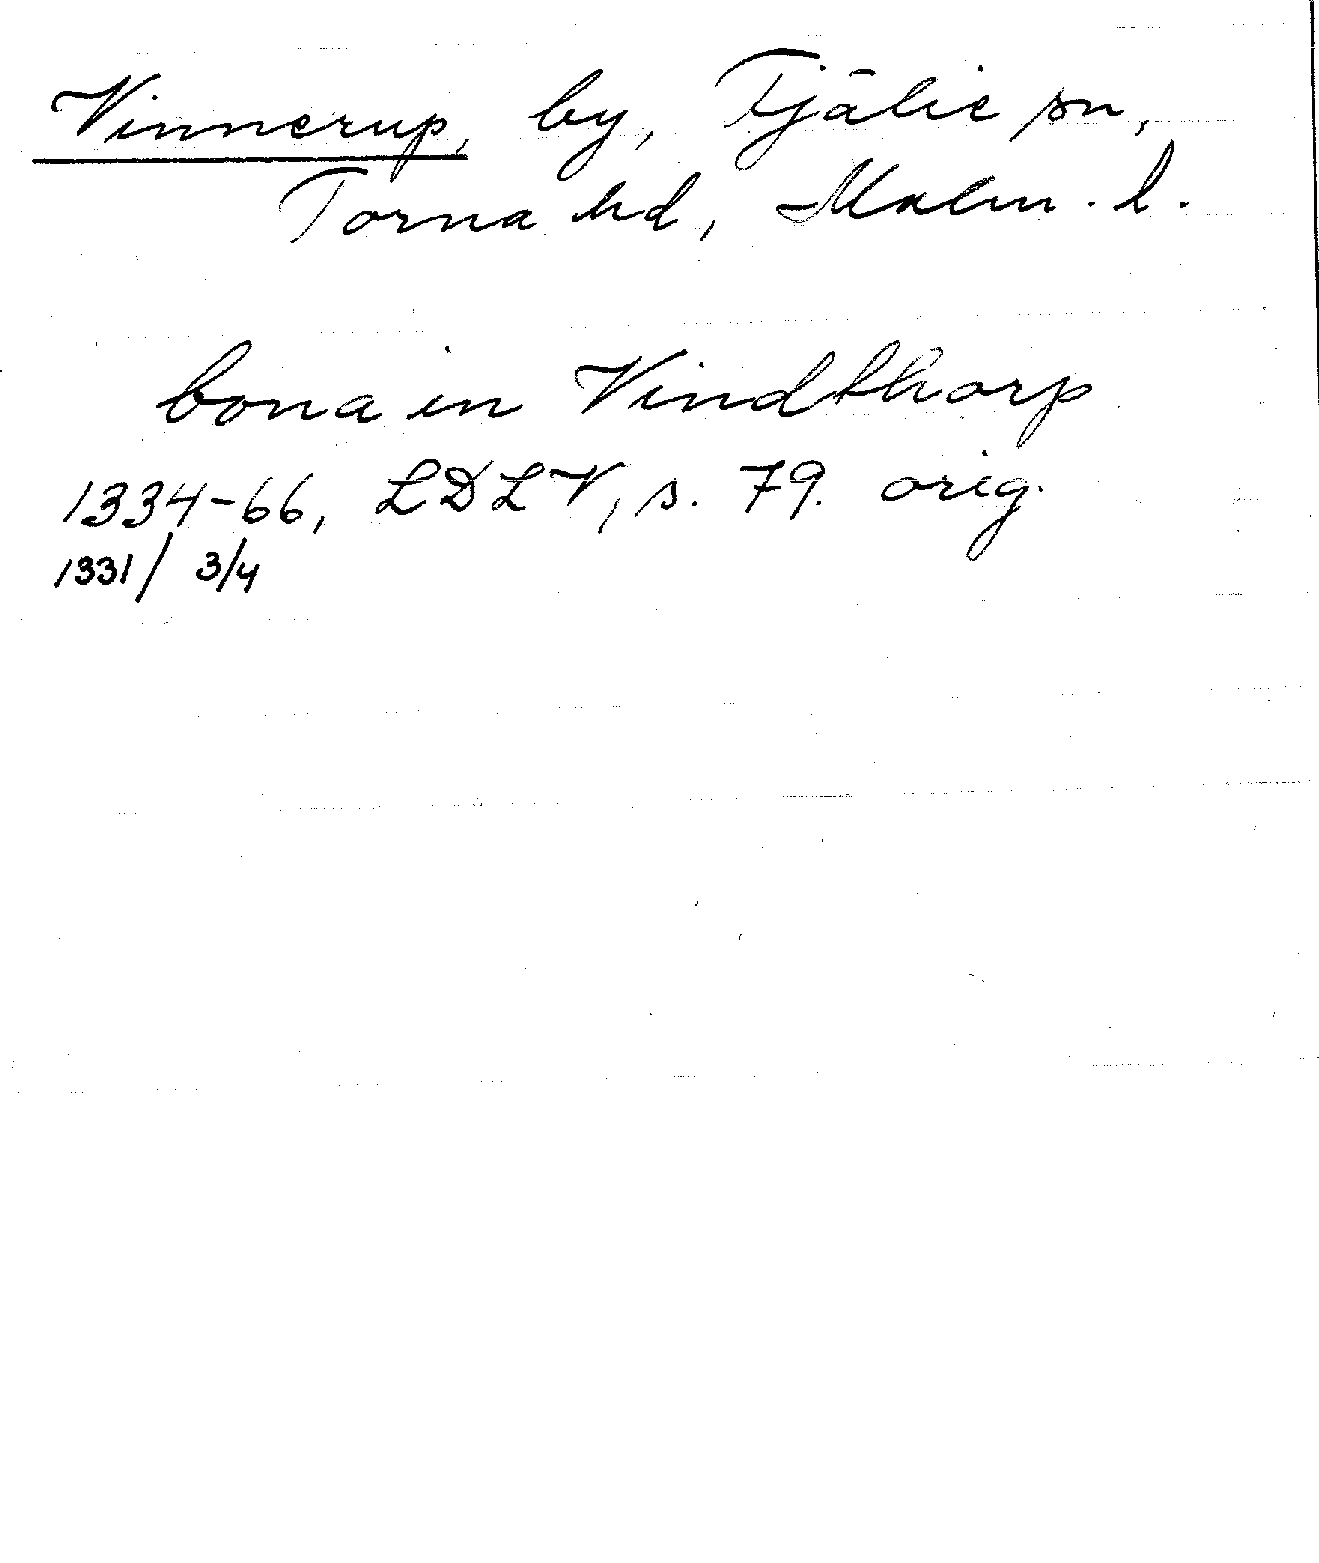 Vinnerup, by, Fjälie sn,
Torna hd, Malm. l.
bona in Vindthorp
1334-66, LDLV, s. 79. orig.
1331/ 3/4